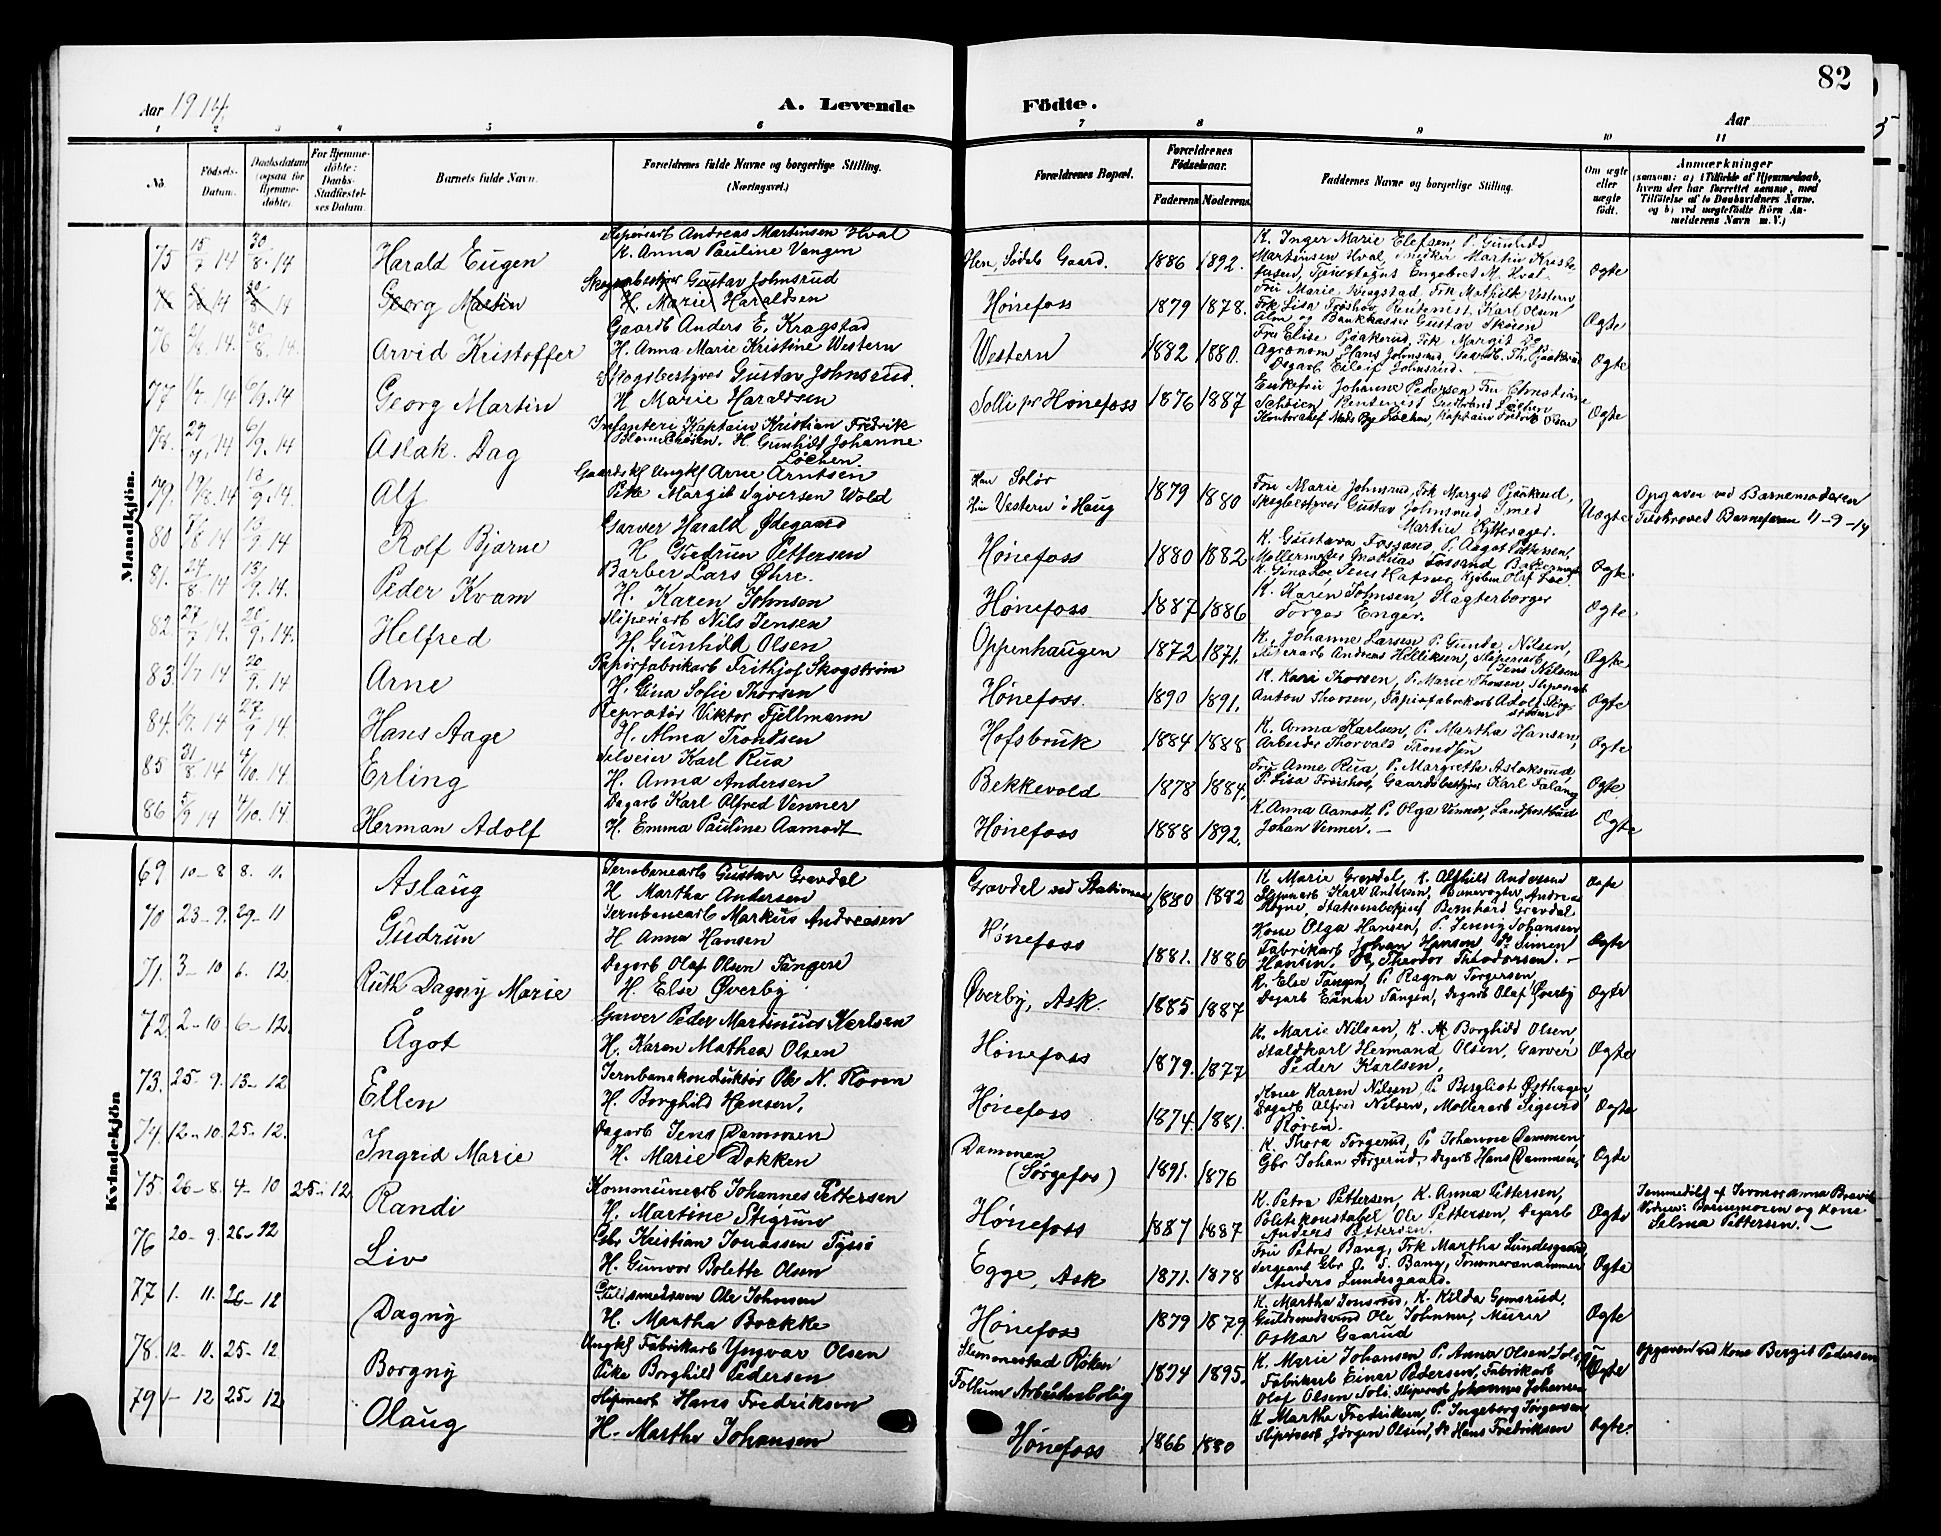 82
Aar 1914
A. Levende Födte.
Aar
1 2 3 4 5 6 7 8 9 10 11
No.
Födsels-Datum.
Daabsdatum (ogsaa for Hjemme-döbte).
For Hjemme-döbte: Daabs-Stadfæstel-ses Datum.
Barnets fulde Navn.
Forældrenes fulde Navne og borgerlige Stilling. (Næringsvei.)
Forældrenes Bopæl.
Forældrenes Födselsaar.
Faderens Moderens
Faddernes Navne og borgerlige Stilling.
Om ægte eller uægte födt.
Anmærkninger
(saasom: a) i Tilfælde af Hjemmedaab, hvem der har forrettet samme, med Tilföielse af to Daabsvidners Navne. og b) ved uægtefödte Börn An-melderens Navn m. V.)
Mandkjön.
75 15/7 14 30/8 14 Harald Eugen
Sliperiarb Andreas Martinsen Hval
K. Anna Pauline Vangen
Hen, Sødals Gaard. 1886 1892.
K. Inger Marie Elefsen, P. Gunhild
Martinsen Hval, Smeker Martin
Engebret M. Hval. Ægte
Georg Martin
Skogsbestyrer Gustav Johnsrud
H. Marie Haraldsen
Hønefoss 1879 1878.
Fru Marie Kragstad, Frk Mathilde Western,
Frk Lisa Frøshog, Rentenist Karl Olsen
Alm og Bankkasser Gustav Skøien Ægte
76 30/8 14 Arvid Kristoffer
Gaardb Anders E. Kragstad
H. Anna Marie Kristine Western
Western 1882 1880.
Fru Elise Pjaakerud, Frk Margit Do
Agronom Hans Johnsrud, Gaardb. Th. Pjaakerud
Dagarb Eileif Johnsrud. Ægte
77 6/9 14 Georg Martin
Skogsbestyrer Gustav Johnsrud.
H Marie Haraldsen
Solli pr Hønefoss 1876 1887
Enkefru Johanne Pedersen Fru Christiane
Schøien, Rentenist
Kontorchef Løchen, Kaptain Fredrik Olsen Ægte
78. 27/7 14 6/9 14 Aslak. Dag
Infanteri Kaptain Kristian Fredrik
H. Gunhild Johanne
Løchen
79. 19/8 14 13/9 14 Alf
Gaardskf Ungkf Arne Arntsen
Pike Margit Syversen Wold
Han Solør
Hun Vestern i Haug 1879 1880
Fru Marie Johnsrud, Frk Margit Pjaakerud,
Skogbestyrer Gustav Johnsrud Smed
Martin Rytterager. Uægte
Opgaven ved Barnemoderen
Tilskrevet Barnefaren 11-9-14
80 8 14 13/9 14 Rolf Bjarne
Garver Harald Ødegaard
H Gudrun Pettersen
Hønefoss 1880 1882
K. Gustava Fossand P. Aagot Pettersen,
Møllermester Markus Fossand
K. Gina Loe Jens Kjøbm Olaf Loe. Ægte
81. 24/8 14 13/9 14. Peder Kvam
Barber Lars Øhre.
H. Karen Johnsen
Hønefoss 1887 1886
K. Karen Johnsen, Slagterborger
Torger Enger. Ægte
82 27/7 14. 20/9 14. Helfred
Sliperiarb Nils Jensen
H. Gunhild Olsen
Oppenhaugen 1872 1871.
K. Johanne Larsen P. Gunda Nilsen,
Sliperarb Andreas Helliksen, Sliperiarb
Jens Nilsen Ægte
83. 7 14 20/9 14 Arne
Papirfabrikarb Frithjof Skogstrøm
H. Gina Sofie Thorsen
Hønefoss. 1890 1891.
K. Kari Thorsen, P. Marie Thorsen Sliperarb
Anton Thorsen, Papirfabrikarb Adolf Skog-
strøm Ægte
84. 14 27/9 14 Hans Aage
Repratør Viktor Fjellmann
H. Alma Trondsen
Hofsbruk 1884 1888
K. Anna Karlsen, P. Martha Hansen,
Arbeider Thorvald Trondsen Ægte
85 31/8 14 4/10. 14 Erling
Karl Rua
H. Anna Andersen
Bekkevold 1878 1884.
Fru Anne Rua, P. Margrethe Aslaksrud
P. Lisa Frøishov, Gaardsbestyrer Karl Falang Ægte
86 5/9 14 4/10. 14 Herman Adolf
Dagarb Karl Alfred Venner
H. Emma Pauline Aamodt
Hønefoss 1888 1892.
K. Anna Aamodt, P. Olga Venner, Landpostbud
Johan Venner. — Ægte
Kvindekjön
69 10-8 8. 11. Aslaug
Jernbanearb Gustav Gravdal
H Martha Andersen
Gravdal ved Stationen 1880 1882
K Marie Gravdal, K. Alfhild Andersen
Karl Andersen, Banevogter Andreas
Stationsbetjent Bernhard Gravdal Ægte
70 23-9. 29-11 Gudrun
Jernbanearb Markus Andreasen
H Anna Hansen
Hønefoss 1881. 1886
Kone Olga Hansen, P. Jenny Johansen
Fabrikarb Johan Hanson Do Simen
Hansen. Do Theodor Theodorsen. — Ægte
71. 3-10 6. 12. Ruth Dagny Marie
Dagarb Olaf Olsen Tangere
H. Else Øverby
Øverby, Ask. 1885 1887
K. Else Tangen, P. Ragna Torgersen,
Dagarb Einar Tangen, Dagarb Olaf Øverby Ægte
72. 2-10. 6-12. Ågot
Garver Peder Martinius Karlsen
H. Karen Mathea Olsen
Hønefoss 1879. 1877
K. Marie Nilsen, K. M Borghild Olsen,
Staldkarl Hermand Olsen, Garver
Peder Karlsen, Ægte
73. 25-9. 13-12 Ellen
Jernbanekonduktør Ole N. Røren
H. Borghild Hansen.
Hønefoss 1874. 1881.
Kone Karen Nilsen, P. Bergliot Østhagen,
Dagarb Alfred Nilsen, Møllerarb Sigurd
Røren. Ægte
74. 12-10. 25-12. Ingrid Marie
Dagarb Jens Dammen
H. Marie Dokken
Dammen
(Sørgefos) 1891. 1876
K. Thora Torgerud, P. Johanne Dammen
Gbr Johan Torgerud, Dagarb Hans Dammen, Ægte
75 26-8. 4-10 25-12. Randi
Kommunearb Johannes Pettersen
H. Martine Stigrun
Hønefoss 1887 1887
K. Petra Pettersen, K. Anna Pettersen,
Politikonstabel Ole Pettersen, Dagarb
Anders Pettersen. Ægte
Jemmedøbt af Jormor Anna Bravik
Vidner: Barnemoren og Kone
Selma Pettersen. —
76 20-9. 26-12 Liv
Gbr Kristian Jonassen Tyssi
H. Gunvor Bolette Olsen
Egge, Ask 1871. 1878
Fru Petra Bang, Frk Martha Lundesgaard,
Sergeant Gbr J. S. Bang, Tommermanner
Anders Lundesgaard. Ægte
77 1. 11. 26-12 Dagny
Guldsmedsven Ole Johnsen
H. Martha Brekke
Hønefoss 1879 1879.
K. Martha Jonsrud, K. Kilda Gomsrud.
Guldsmedsvend Ole Johnsen, Murer
Oskar Gaarud Ægte
78. 12-11. 25-12 Borgny
Ungkf Fabrikarb Yngvar Olsen
Pike Borghild Pedersen
Slemmestad Röken
Follum Arbeiderbolig 1874 1895.
K. Marie Johansen, P. Anna Olsen Soli
Fabrikarb Einar Pedersen, Fabrikarb
Olaf Olsen Soli, Sliperarb Johannes Johansen Uægte
Opgaven ved Kone Bergit Pedersen
79 1-12 25-12 Olaug
Sliperarb Hans Fredriksen
H. Martha Johansen
Hønefoss 1866 1880
K Martha Fredriksen, P. Ingeborg Jørgensen
Sliperarb Jørgen Olsen, Do Hans Fredriksen Ægte.